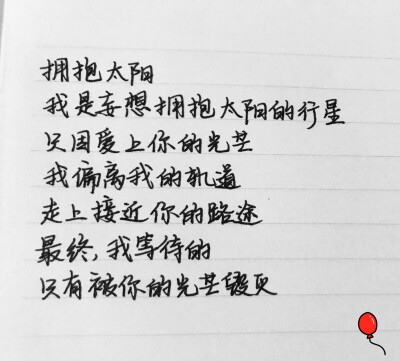 拥抱太阳
我是妄想拥抱太阳的行星
只因爱上你的光芒
我偏离我的轨道
走上接近你的路途
最终,我等待的
只有被你的光芒毁灭